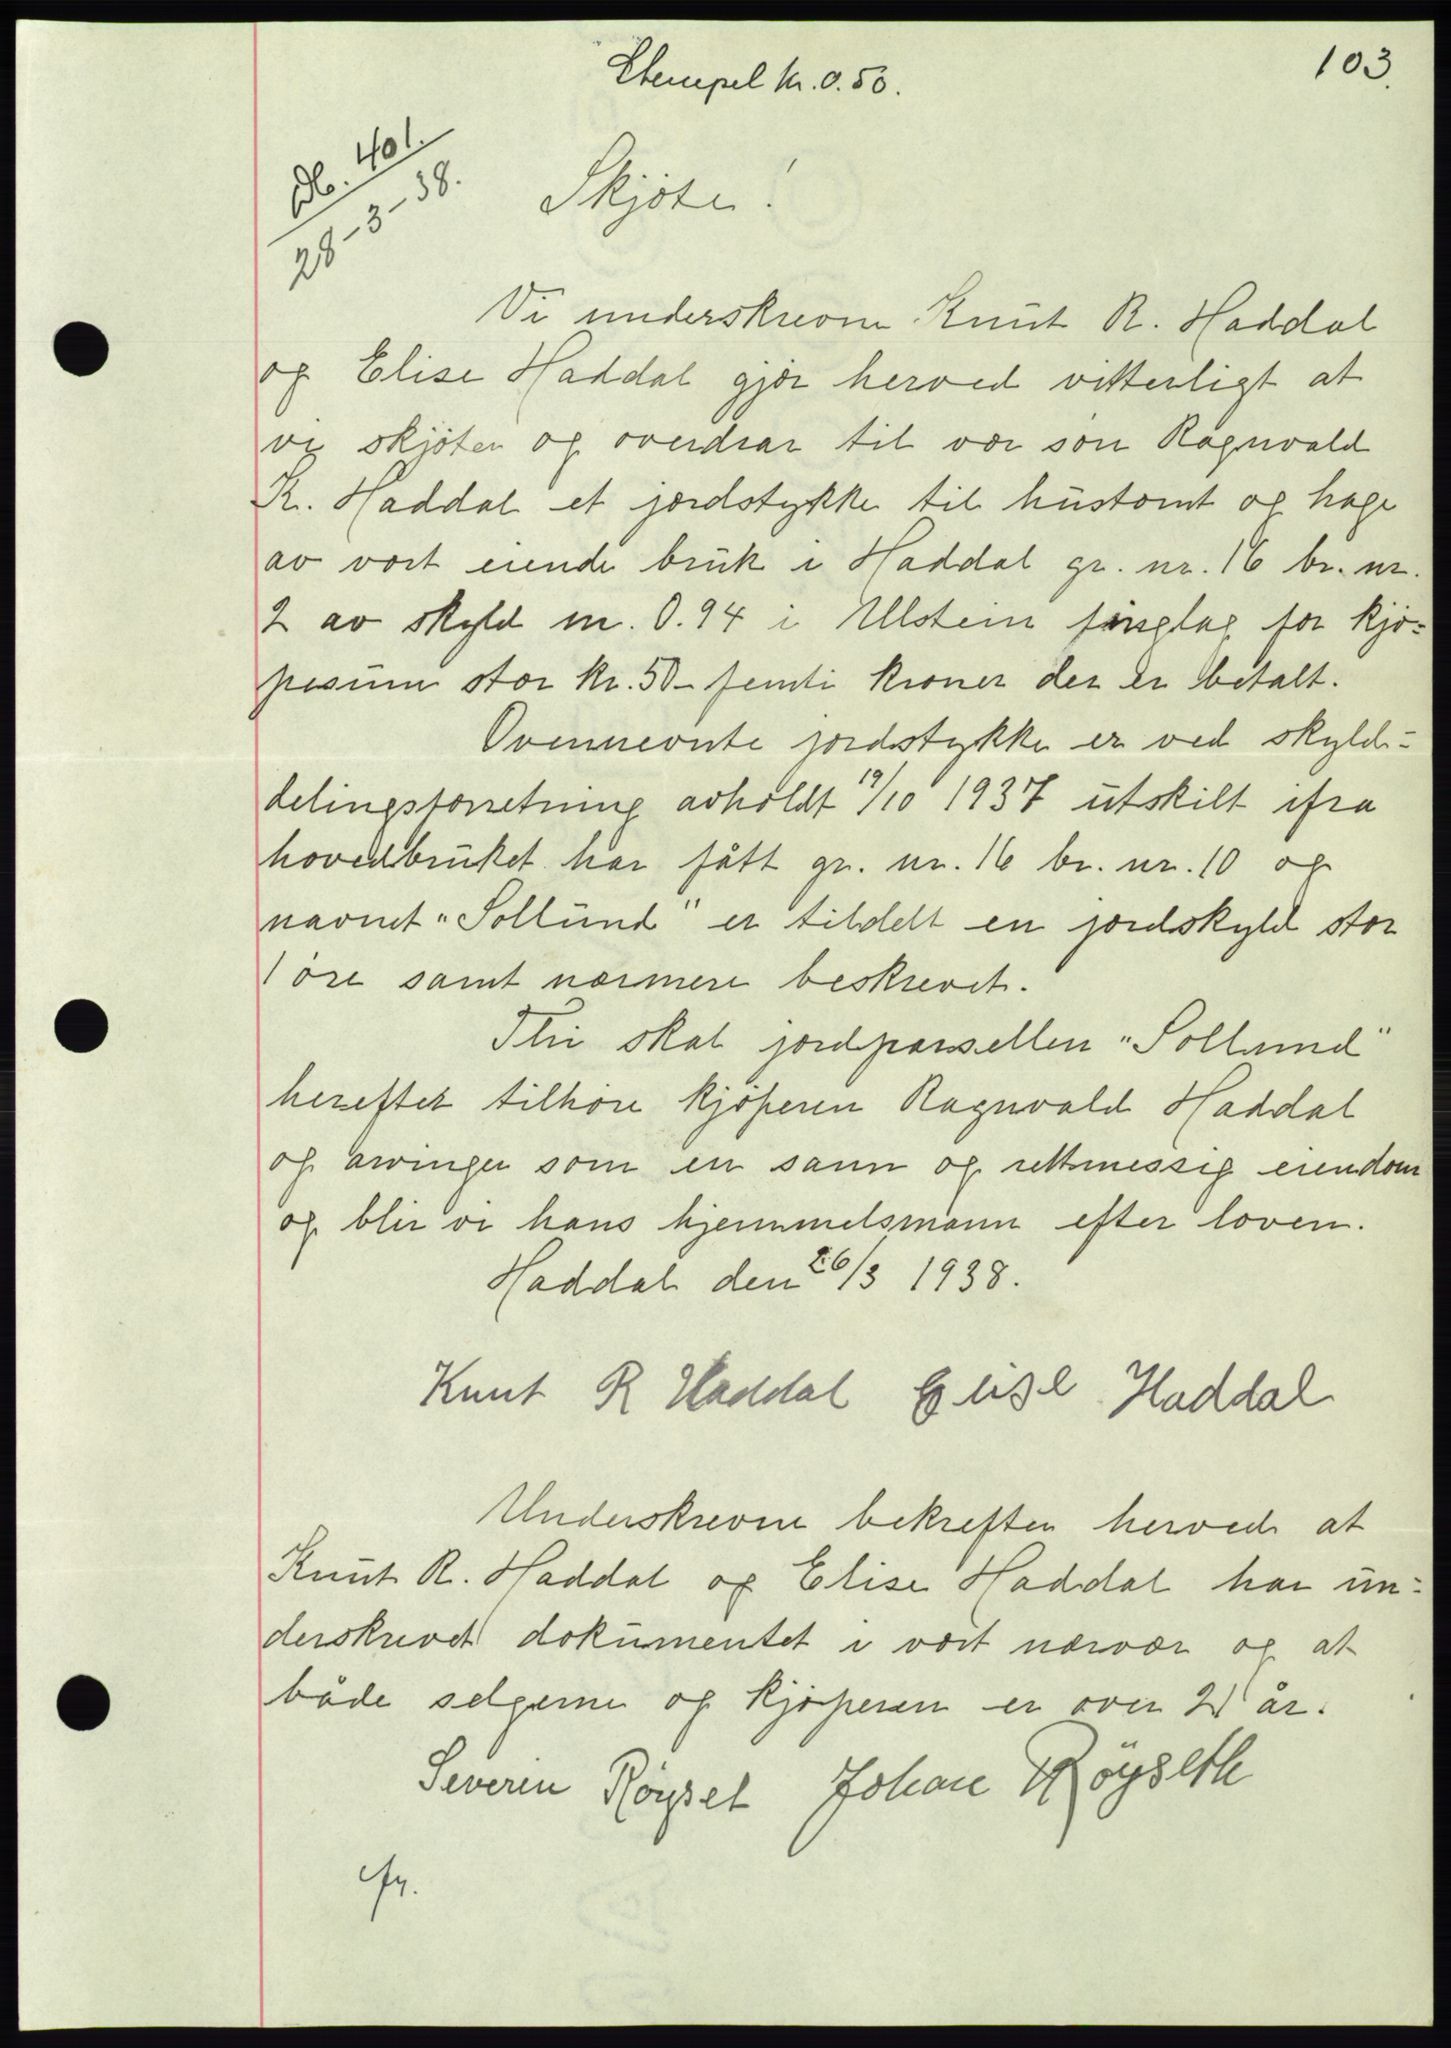 103.
Stempel kr. 0.50.
Db. 401.
28-3-38.
Skjöte!
Vi underskrevne Knut R. Haddal
og Elise Haddal gjör herved vitterligt at
vi skjöter og overdrar til vor sön Ragnvald
K. Haddal et jordstykke til hustomt og hage
av vort eiende bruk i Haddal gr. nr. 16 br. nr.
2 av skyld m. 0.94 i Ulstein tinglag for kjö=
pesum stor kr. 50 - femti kroner der er betalt.
Ovennevnte jordstykke er ved skyld=
delingsforretning avholdt 19/10 1937 utskilt ifra
hovedbruket har fått gr. nr. 16 br. nr. 10 og
navnet "Sollund" er tildelt en jordskyld stor
1 öre samt nærmere beskrevet.
Thi skal jordparsellen "Sollund"
herefter tilhöre kjöperen Ragnvald Haddal
og arvinger som en sann og rettmessig eiendom
og blir vi hans hjemmelsmann efter loven.
Haddal den 26/3 1938.
Knut R Haddal Elise Haddal
Underskrevne bekrefter herved at
Knut R. Haddal og Elise Haddal har un=
derskrevet dokumentet i vort nærvær og at
både selgerne og kjöperen er over 21 år.
Severin Röyset Johan Röyseth